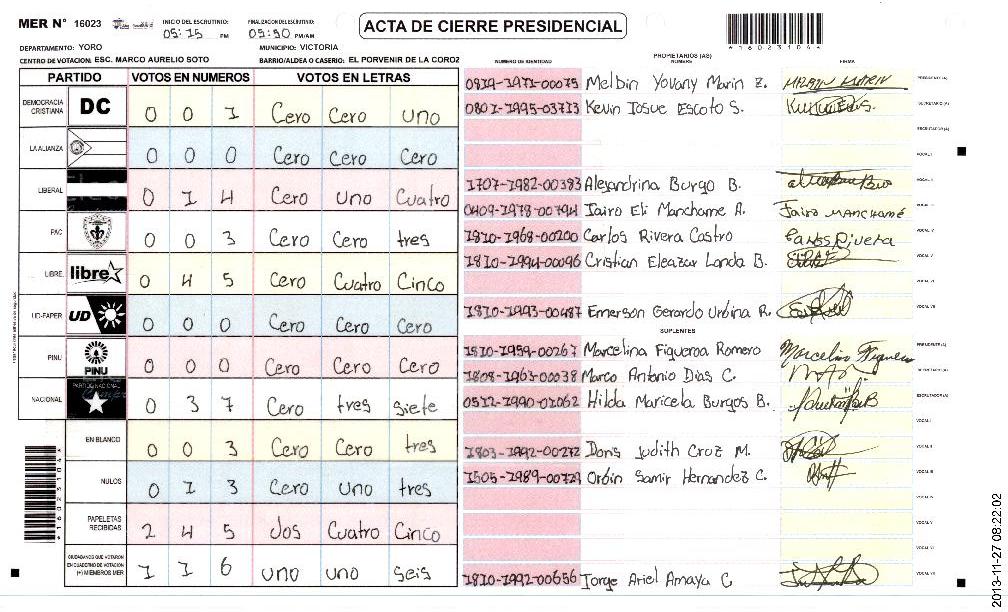 MER N° 16023
INICIO DEL ESCRUTINIO: 05:15 PM
FINALIZACION DEL ESCRUTINIO: 05:50 PM/AM
ACTA DE CIERRE PRESIDENCIAL
*16023104*
DEPARTAMENTO: YORO
MUNICIPIO: VICTORIA
CENTRO DE VOTACION: ESC. MARCO AURELIO SOTO
BARRIO/ALDEA O CASERIO: EL PORVENIR DE LA COROZ
PARTIDO VOTOS EN NUMEROS VOTOS EN LETRAS
DEMOCRACIA CRISTIANA DC 0 0 1 Cero Cero uno
LA ALIANZA 0 0 0 Cero Cero Cero
LIBERAL 0 1 4 Cero uno Cuatro
PAC 0 0 3 Cero Cero tres
LIBRE. libre 0 4 5 Cero Cuatro Cinco
UD-FAPER UD 0 0 0 Cero Cero Cero
PINU PINU 0 0 0 Cero Cero Cero
NACIONAL PARTIDO NACIONAL 0 3 7 Cero tres siete
EN BLANCO 0 0 3 Cero Cero tres
NULOS 0 1 3 Cero uno tres
PAPELETAS RECIBIDAS 2 4 5 dos Cuatro Cinco
CIUDADANOS QUE VOTARON EN CUADERNO DE VOTACION (+) MIEMBROS MER 1 1 6 uno uno seis
*16023104*
PROPIETARIOS (AS)
NUMERO DE IDENTIDAD NOMBRE FIRMA
0819-1971-00075 Melbin Yovany Marin Z. PRESIDENTE (A)
0801-1995-03713 Kevin Josue Escoto S. SECRETARIO (A)
ESCRUTADOR (A)
VOCAL I
1707-1982-00383 Alejandrina Burgo B. VOCAL II
0409-1978-00794 Jairo Eli Manchame A. Jairo MANCHAMÉ VOCAL III
1810-1968-00200 Carlos Rivera Castro Carlos Rivera VOCAL IV
1810-1994-00096 Cristian Eleazar Landa B. VOCAL V
VOCAL VI
1810-1993-00487 Emerson Gerardo Urbina R. VOCAL VII
SUPLENTES
1810-1959-00267 Marcelina Figueroa Romero Marcelina Figuero PRESIDENTE (A)
1808-1963-00038 Marco Antonio Dias C. SECRETARIO (A)
0512-1990-01062 Hilda Maricela Burgos B. ESCRUTADOR (A)
VOCAL I
1803-1992-00272 Doris Judith Cruz M. VOCAL II
1505-1989-00729 Orbin Samir Hernandez C. VOCAL III
VOCAL IV
VOCAL V
VOCAL VI
1810-1992-00656 Jorge Ariel Amaya C VOCAL VII
2013-11-27 08:22:02